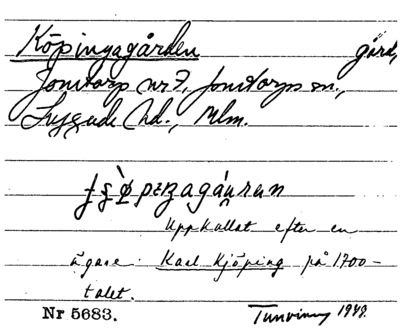 Köpingagården gård,
Jonstorp nr 7, Jonstorps sn.,
Luggude hd., Mlm.
Uppkallat efter en
ägare Karl Kjöping på 1700-
talet.
Nr 5683. 1948.